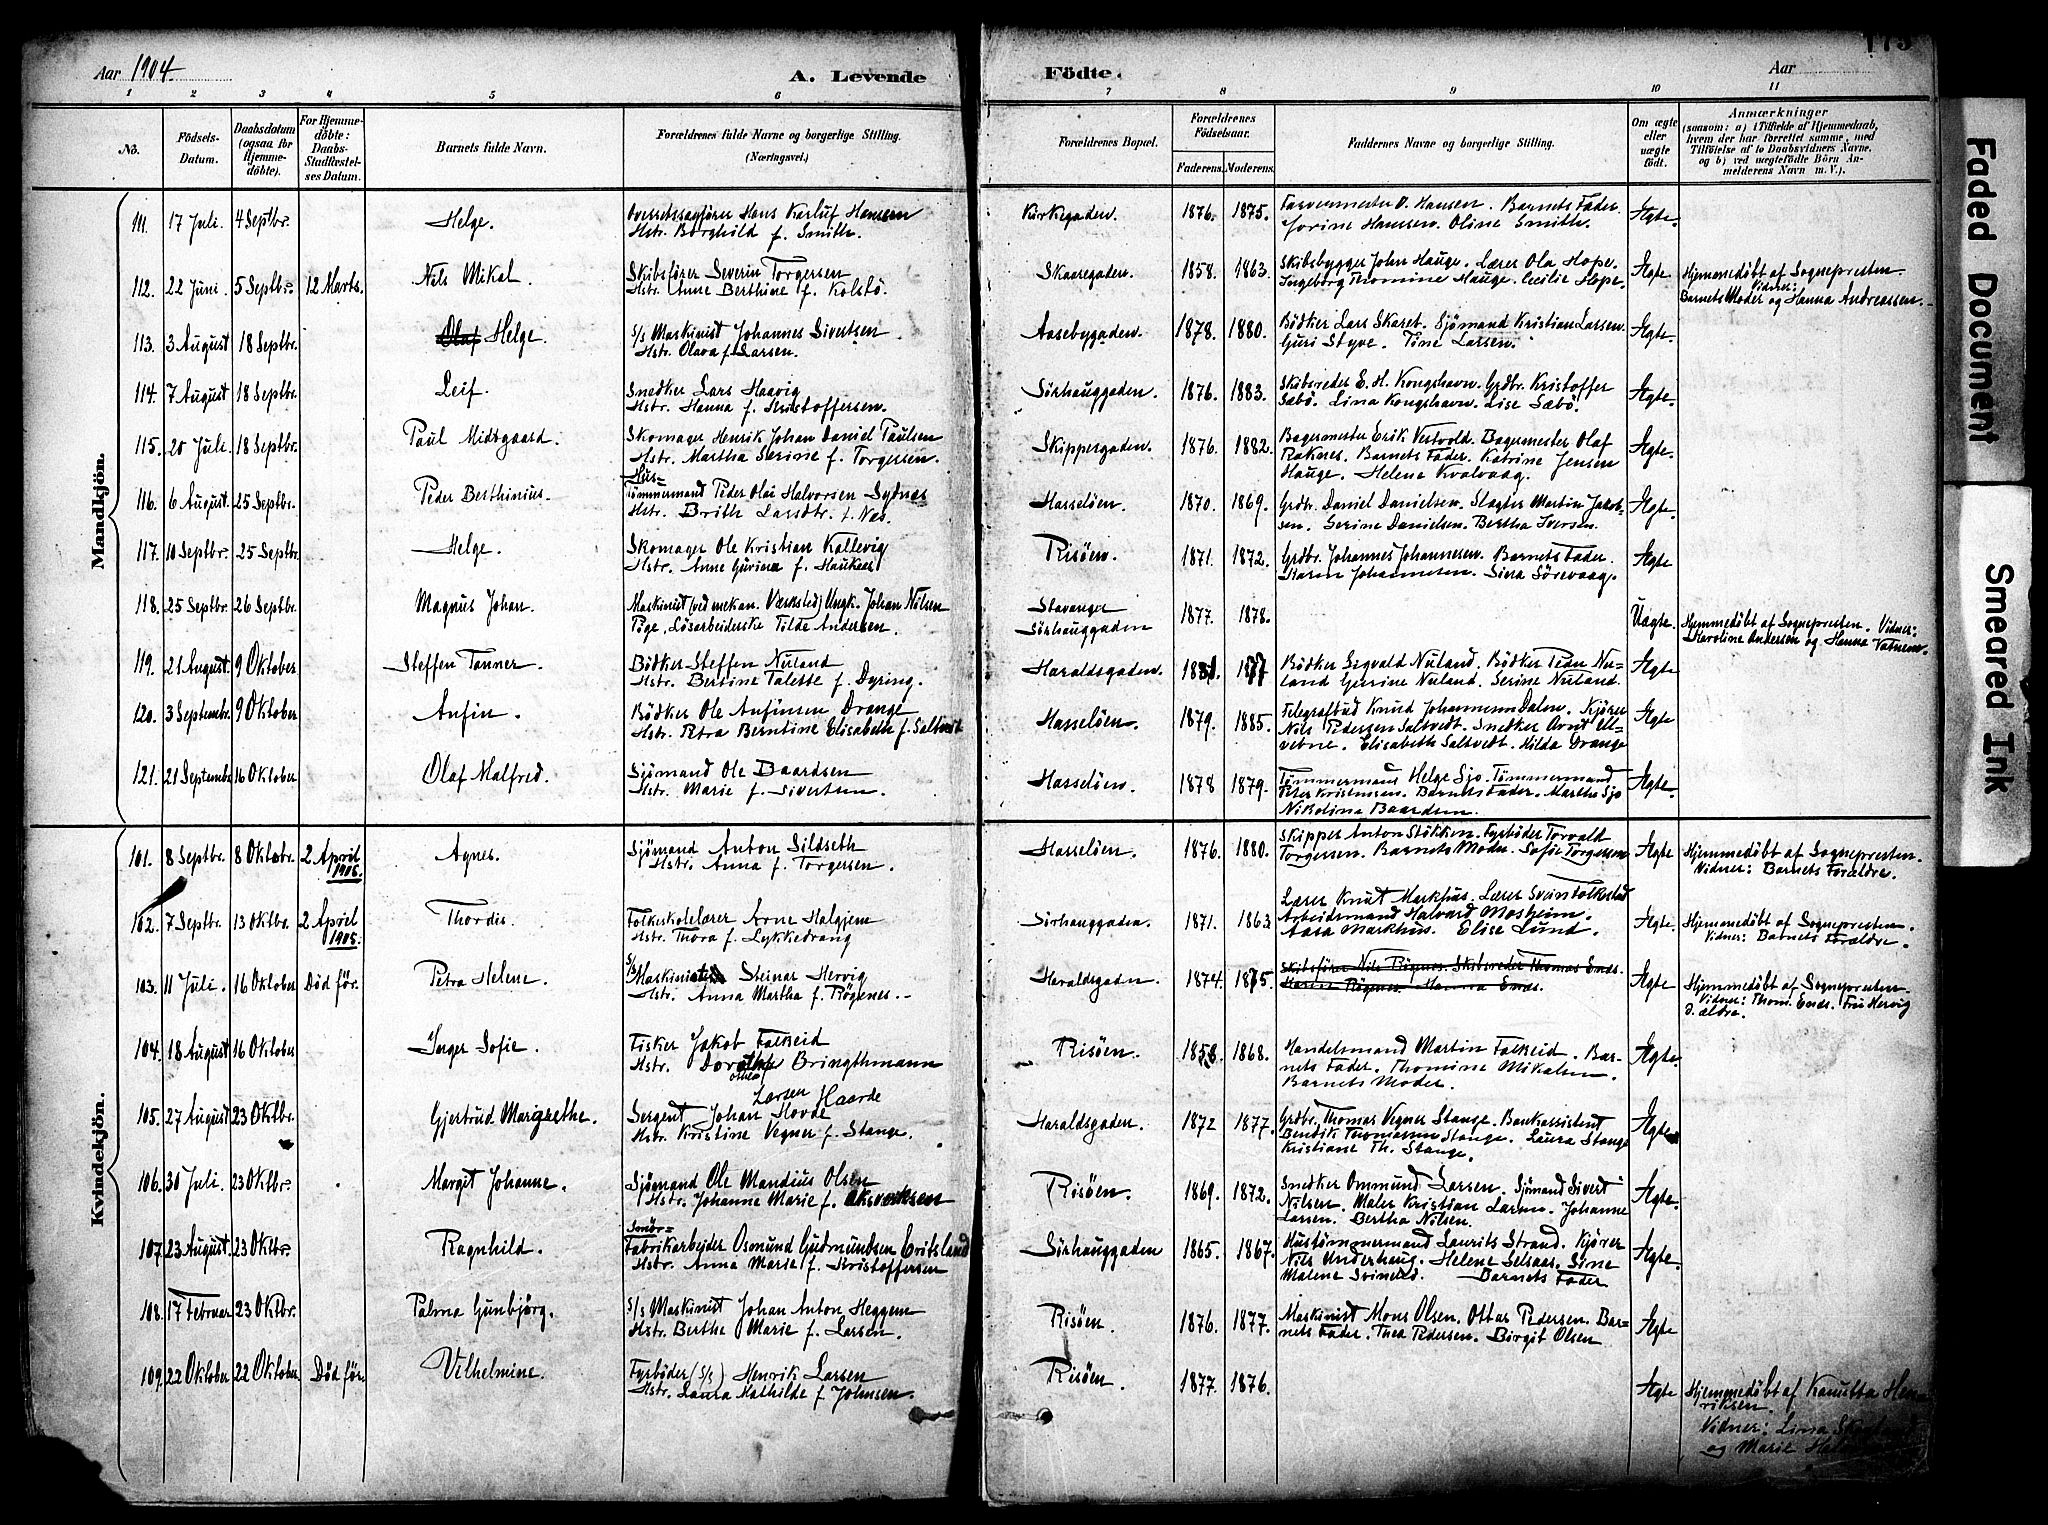 Aar 1904.
A. Levende Födte.
Aar
173
1 2 3 4 5 6 7 8 9 10 11
No.
Födsels-Datum.
Daabsdatum (ogsaa for Hjemmedöbte).
For Hjemmedöbte: Daabs-Stadfæstelses Datum.
Barnets fulde Navn.
Forældrenes fulde Navne og borgerlige Stilling. (Næringsvei.)
Forældrenes Bopæl.
Forældrenes Födselsaar.
Faderens. Moderens.
Faddernes Navne og borgerlige Stilling.
Om ægte eller uægte födt.
Anmærkninger (saasom: a) i Tilfælde af Hjemmedaab, hvem der har forrettet samme, med Tilföielse af to Daabsvidners Navne, og b) ved uægtefödte Börn Anmelderens Navn m. V.).
Mandkjön.
111. 17 Juli. 4 Septbr. Helge. Overretssagförer Hans Karluf Hansen Hstr. Borghild f. Smith. Kirkegaden. 1876. 1875. Farvermester O. Hansen. Barnets Fader. Jorine Hanssen. Oline Smith. Ægte.
112. 22 Juni. 5 Septbr. 12 Marts. Nils Mikal. Skibsförer Severin Torgersen Hstr. Anne Berthine f. Kolstö. Skaaregaden. 1858. 1863. Skibsbygger John Hauge. Lærer Ola Hope. Ingeborg Thomine Hauge. Cecilie Hope. Ægte Hjemmedöbt af Sognepresten. Vidner: Barnets Moder og Hanna Andreassen.
113. 3 August 18 Septbr. Olaf Helge. S/S Maskinist Johannes Sivertsen Hstr. Olava f. Larsen. Aasebygaden. 1878. 1880. Bödker Lars Skaret. Sjömand Kristian Larsen. Guri Styve. Tine Larsen. Ægte.
114. 7 August 18 Septbr. Leif. Snedker Lars Haavig Hstr. Hanna f. Kristoffersen. Sörhauggaden. 1876. 1883. Skibsreder E. H. Kongshavn. Grdbr. Kristoffer Sæbö. Lina Kongshavn. Lise Sæbö. Ægte.
115. 20 Juli. 18 Septbr. Paul Midtgaard. Skomager Henrik Johan Daniel Paulsen Hstr. Martha Serine f. Torgersen. Skippergaden. 1876. 1882. Bagermester Erik Vestvold. Bagermester Olaf Raknes. Barnets Fader. Katrine Jensen Hauge. Helene Kvalvaag. Ægte.
116. 6 August. 25 Septbr. Peder Berthinius. Hus-Tömmermand Peder Olai Halvorsen Sydnæs Hstr. Brith Larsdtr. f. Næs. Hasselöen. 1870. 1869. Grdbr. Daniel Danielsen. Slagter Martin Jakobsen. Serine Danielsen. Bertha Iversen. Ægte.
117. 10 Septbr. 25 Septbr. Helge. Skomager Ole Kristian Kallevig Hstr. Anne Gurina f. Haukeas Risöen. 1871. 1872. Grdbr. Johannes Johannesen. Barnets Fader. Karen Johannesen. Sina Sörevaag. Ægte
118. 25 Septbr. 26 Septbr. Magnus Johan. Maskinist (ved mekan. Værksted) Ungk. Johan Nilsen Pige, Lösarbeiderske Tilda Andersen. Stavanger Sörhauggaden 1877. 1878. Uægte. Hjemmedöbt af Sognepresten. Vidner: Karoline Andersen og Hanna Vatnem.
119. 21 August. 9 Oktober Steffen Tanner. Bödker Steffen Nuland Hstr. Bertine Talette f. Dyring. Haraldsgaden. 1877 Bödker Sigvald Nuland. Bödker Peder Nuland Gurine Nuland. Serine Nuland. Ægte
120. 3 Septembr. 9 Oktober Anfin. Bödker Ole Anfinsen Drange Hstr. Petra Berntine Elisabeth f. Saltvedt Hasselöen. 1879. 1885. Telegrafbud Knud Johannesen Dalen. Kjörer Nils Pedersen Saltvedt. Snedker Arnt Ulvetne. Elisabeth Saltvedt. Hilda Drange Ægte
121. 21 Septembr 16 Oktober Olaf Malfred. Sjömand Ole Baardsen Hstr. Marie f. Sivertsen. Hasselöen. 1878 1879. Tömmermand Helge Sjo. Tömmermand Peter Kristensen. Barnets Fader. Martha Sjo Nikolina Baardsen. Ægte.
Kvindekjön.
101. 8 Septbr. 8 Oktobr. 2 April 1905. Agnes. Sjömand Anton Sildseth Hstr. Anna f. Torgersen. Hasselöen. 1876. 1880. Skipper Anton Stökken. Fyrböder Torvald Torgersen. Barnets Moder. Sofie Torgersen Ægte Hjemmedöbt af Sognepresten. Vidner: Barnets Forældre.
102. 7 Septbr. 13 Oktbr. 2 April 1905. Thordis. Folkeskolelærer Arne Halgjem Hstr. Thora f. Lykkedrang Sörhauggaden. 1871. 1863 Lærer Knut Markhus. Lærer Svein Folkestad Arbeidsmand Halvard Mosheim. Aasa Markhus. Elise Lund. Ægte. Hjemmedöbt af Sognepresten. Vidner: Barnets Forældre.
103. 11 Juli. 16 Oktober Död för. Petra Helene. S/S Maskinist Steinar Hervig Hstr. Anna Martha f. Rögenes. Haraldsgaden. 1874. 1875. Skibsförer Nils Rögenes. Skibsreder Thomas Enes. Karen Rögenes. Hanna Enes. Ægte Hjemmedöbt af Sognepresten. Vidner: Thom. Enes. Fru Hervig d. ældre.
104. 18 August 16 Oktober Inger Sofie. Fisker Jakob Falkeid Hstr. Dorothea Bringthmann Risöen. 1858. 1868. Handelsmand Martin Falkeid. Barnets Fader. Thomine Mikalsen. Barnets Moder. Ægte.
105. 27 August 23 Oktbr. Gjertrud Margrethe. Sergent Johan Larsen Hovde Haarde Hstr. Kristine Vegner f. Stange. Haraldsgaden. 1872 1877. Grdbr. Thomas Vegner Stange. Bankassistent Bendik Thomassen Stange. Laura Stange Kristiane Th. Stange. Ægte
106. 30 Juli. 23 Oktbr. Margit Johanne. Sjömand Ole Mandius Olsen Hstr. Johanne Marie f. Risöen. 1869. 1872. Snedker Ommund Larsen. Sjömand Sivert Nilsen. Maler Kristian Larsen. Johanne Larsen. Bertha Nilsen. Ægte.
107. 23 August 23 Oktbr. Ragnhild. Smör-Fabrikarbejder Osmund Gudmundsen Eritsland Hstr. Anna Marie f. Kristoffersen Sörhauggaden 1865. 1867. Hustömmermand Laurits Strand. Kjörer Nils Underhaug. Helene Selsaas. Sine Malene Svineld. Barnets Fader Ægte.
108. 17 Februar 23 Oktbr. Palma Gunbjörg. S/S Maskinist Johan Anton Heggem Hstr. Berthe Marie f. Larsen. Risöen. 1876. 1877. Maskinist Mons Olsen. Ottar Pedersen. Barnets Fader. Thea Pedersen. Birgit Olsen Ægte
109. 22 Oktober 22 Oktober Död för. Vilhelmine. Fyrböder (S/S) Henrik Larsen Hstr. Laura Mathilde f. Johnsen. Risöen. 1877. 1876. Ægte Hjemmedöbt af Kanutta Henriksen. Vidner: Lina og Marie
Faded Document
Smeared Ink